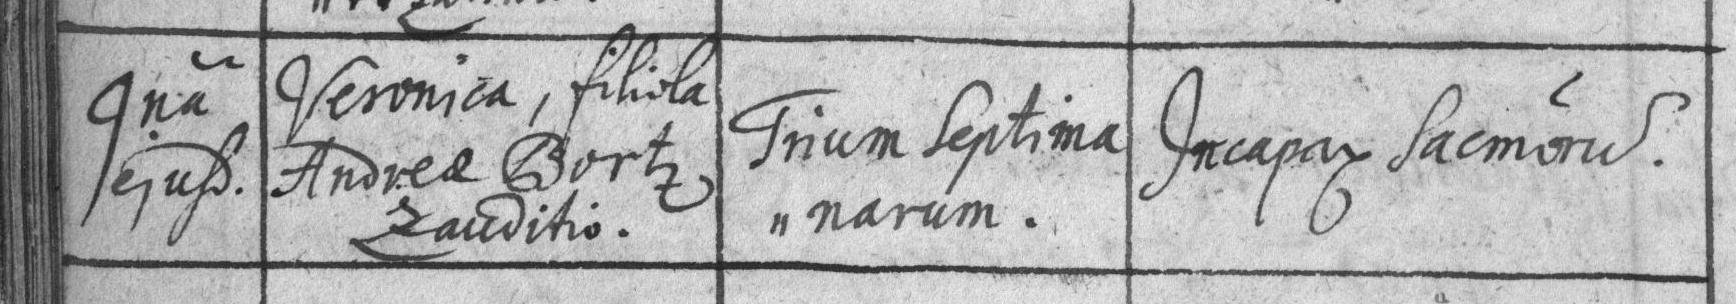 9nâ
ejusd.
Veronica, filiola
Andreæ Bortz
Zauditio.
Trium Septima
„narum.
Incapax Sacmõrũ.